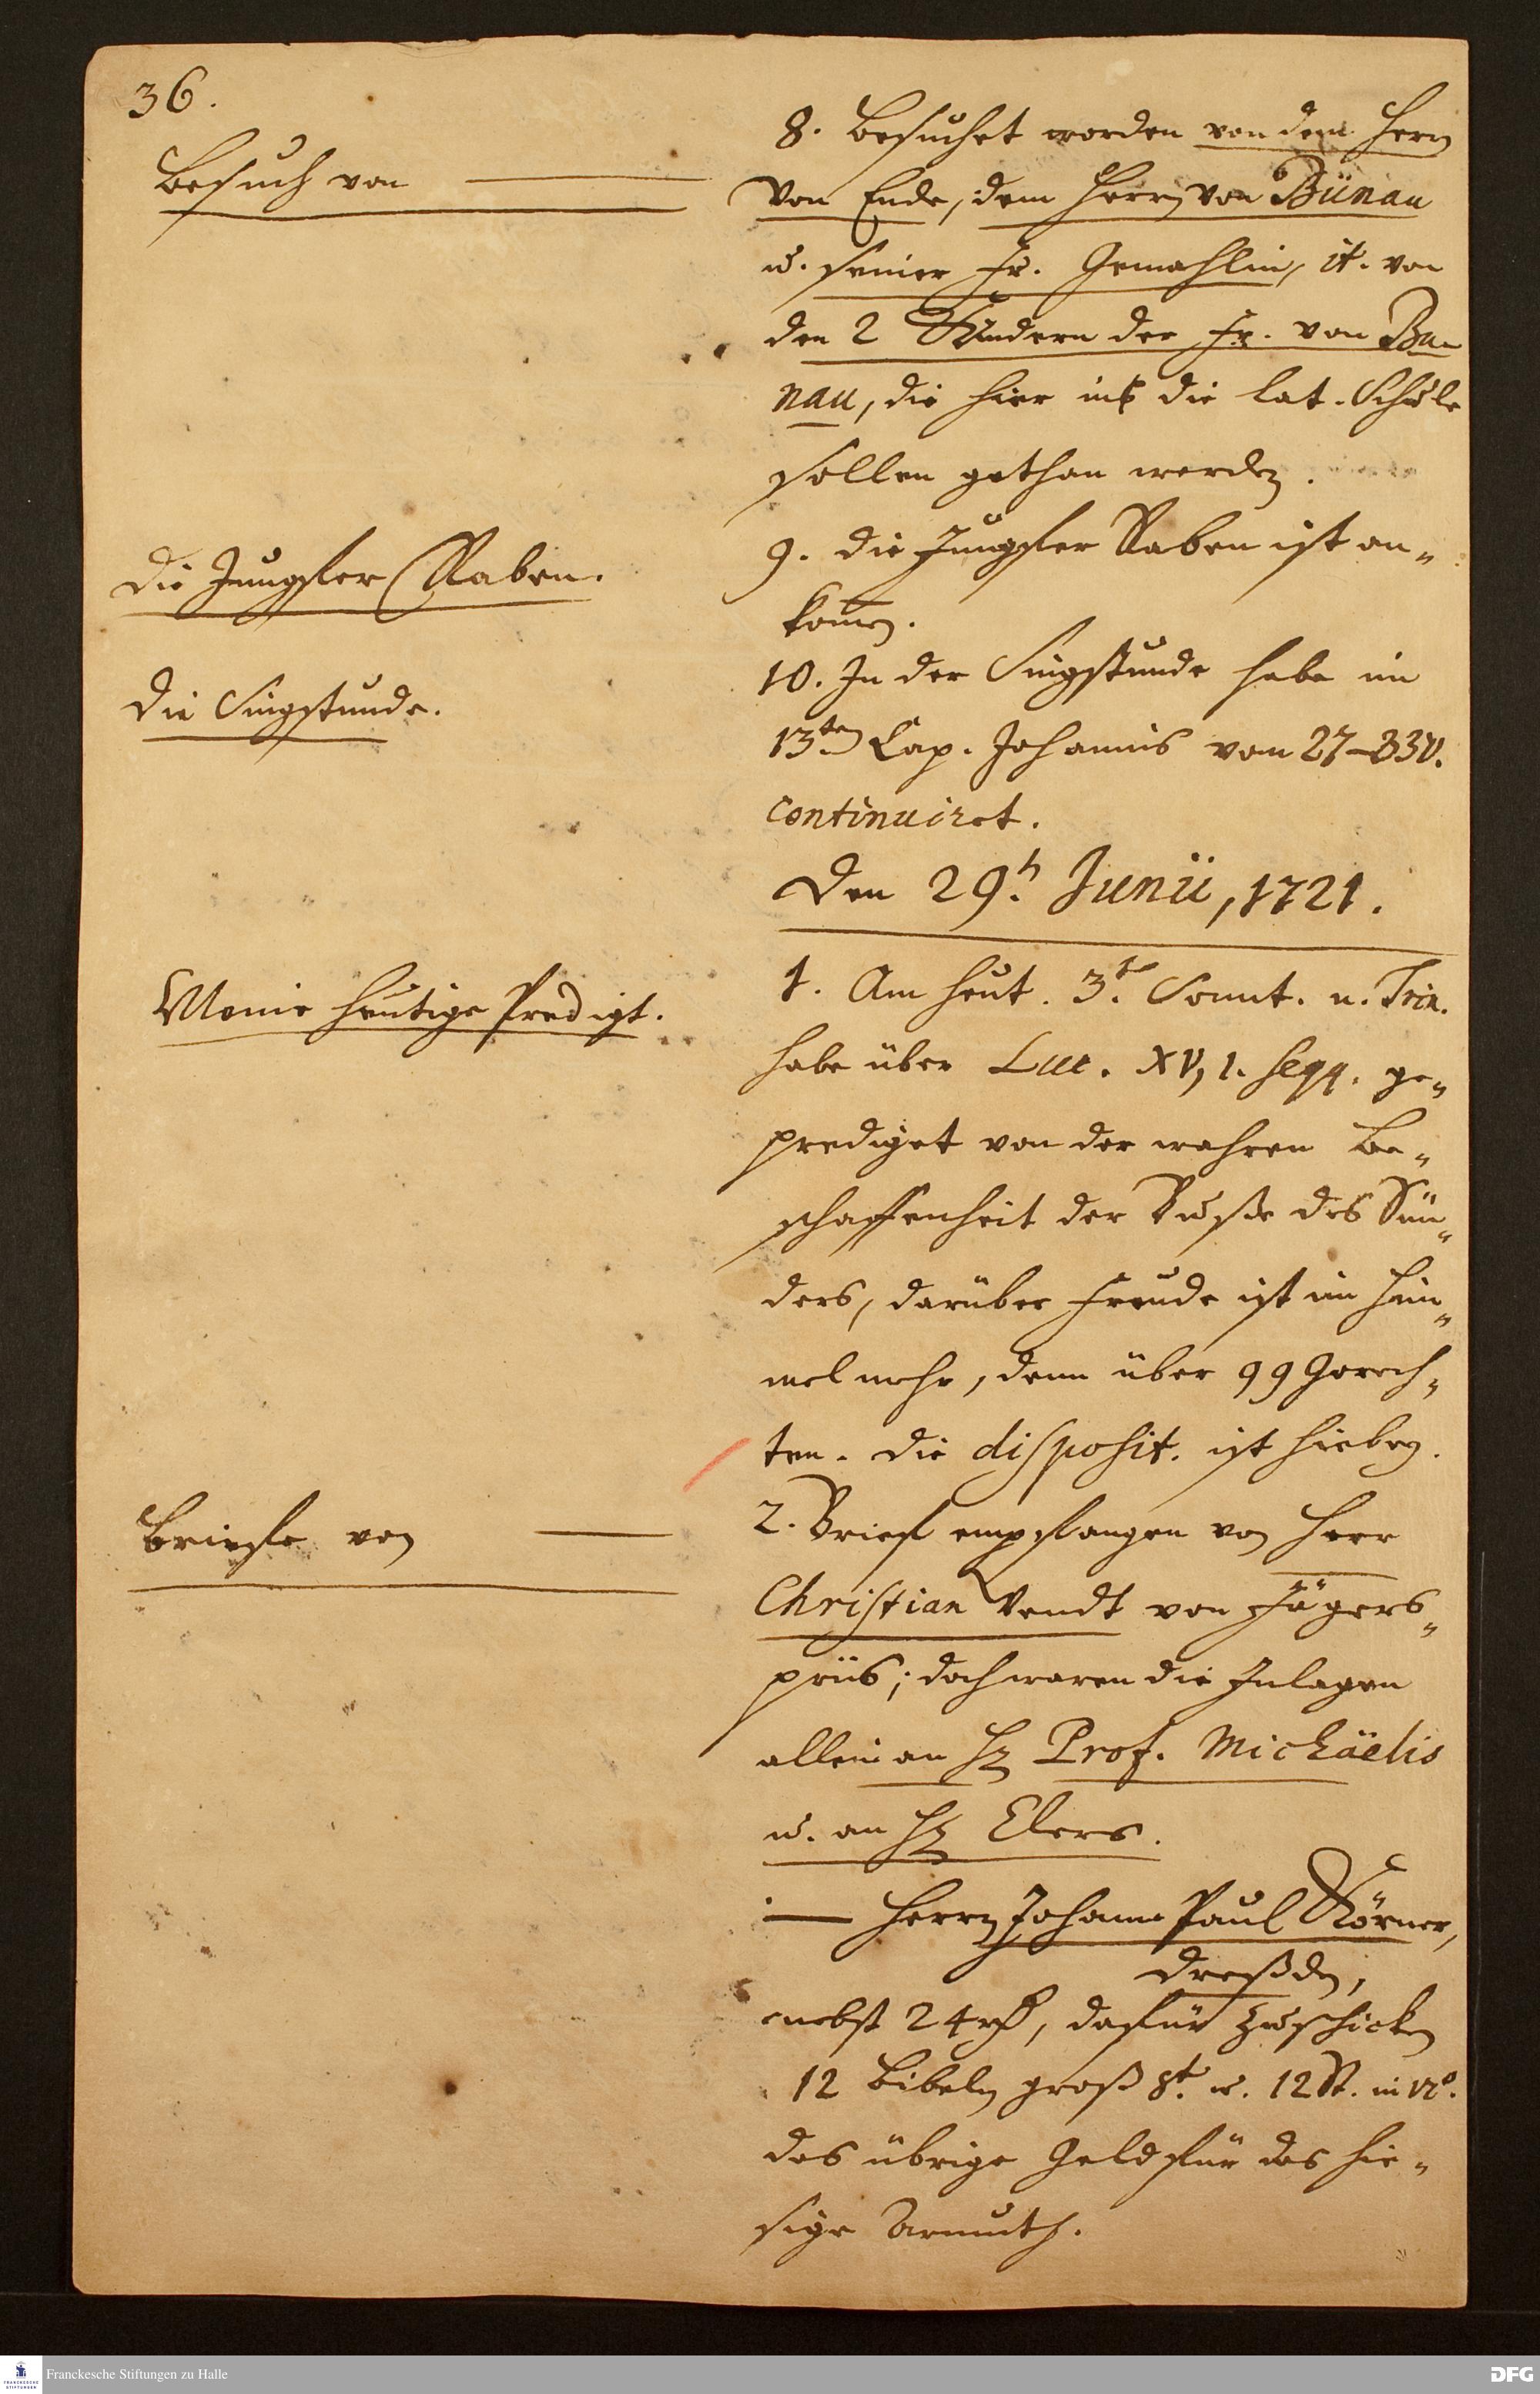 36.
Besuch von
8. Besuchet worden von dem Herrn
von Ende, dem Herrn von Bünau
u. seiner Fr. Gemahlin, it. von
den 2 Kindern der Fr. von Bu-
nau, die hier in die lat. Schule
sollen gethan werden.
Die Jungfer Raben.
9. Die Jungfer Raben ist an-
kom̄en.
Die Singstunde.
10. In der Singstunde habe im
13ten Cap. Johannis vom 27-33 v.
continuiret.
Den 29. Junii, 1721.
Meine heutige Predigt.
1. Am heut. 3t. Sonnt. n. Trin.
habe über Luc. XV, 1. seqq. ge-
prediget von der wahren Be-
schaffenheit der Busse des Sün-
ders, darüber Freude ist im Him-
mel mehr, denn über 99 Gerech-
ten. Die disposit. ist hiebey.
Briefe von
2. Brief empfangen von Herr
Christian Wendt von Jägers-
priis; doch waren die Inlagen
allein an H. Prof. Michäelis
u. an H. Elers.
— Herrn Johann Paul Körner,
Dreßden,
nebst 24 rh, dafür zu schicken
12 Bibeln groß 8t. u. 12 St. in 12o.
das übrige Geld für das hie-
sige Armuth.
Franckesche Stiftungen zu Halle
FRANCKESCHE STIFTUNGEN
DFG